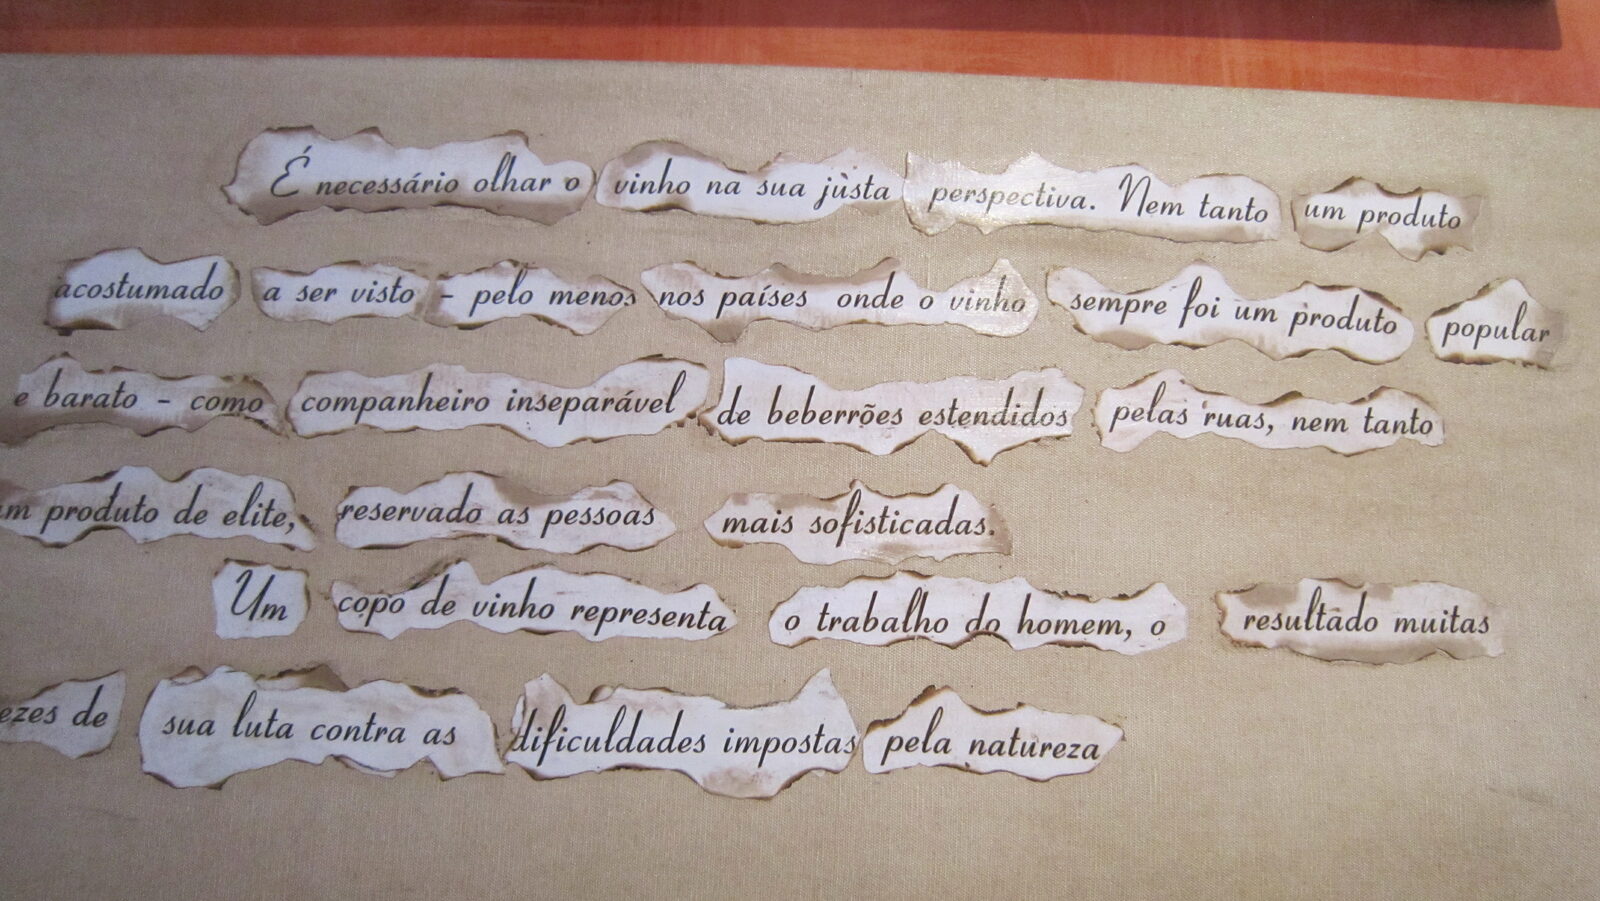 É necessário olhar o vinho na sua jùsta perspectiva. Nem tanto um produto
acostumado a ser visto - pelo menos nos países onde o vinho sempre foi um produto popular
e barato - como companheiro inseparável de beberrões estendidos pelas ruas, nem tanto
m produto de elite, reservado as pessoas mais sofisticadas.
Um copo de vinho representa o trabalho do homem, o resultado muitas
ezes de sua luta contra as dificuldades impostas pela natureza